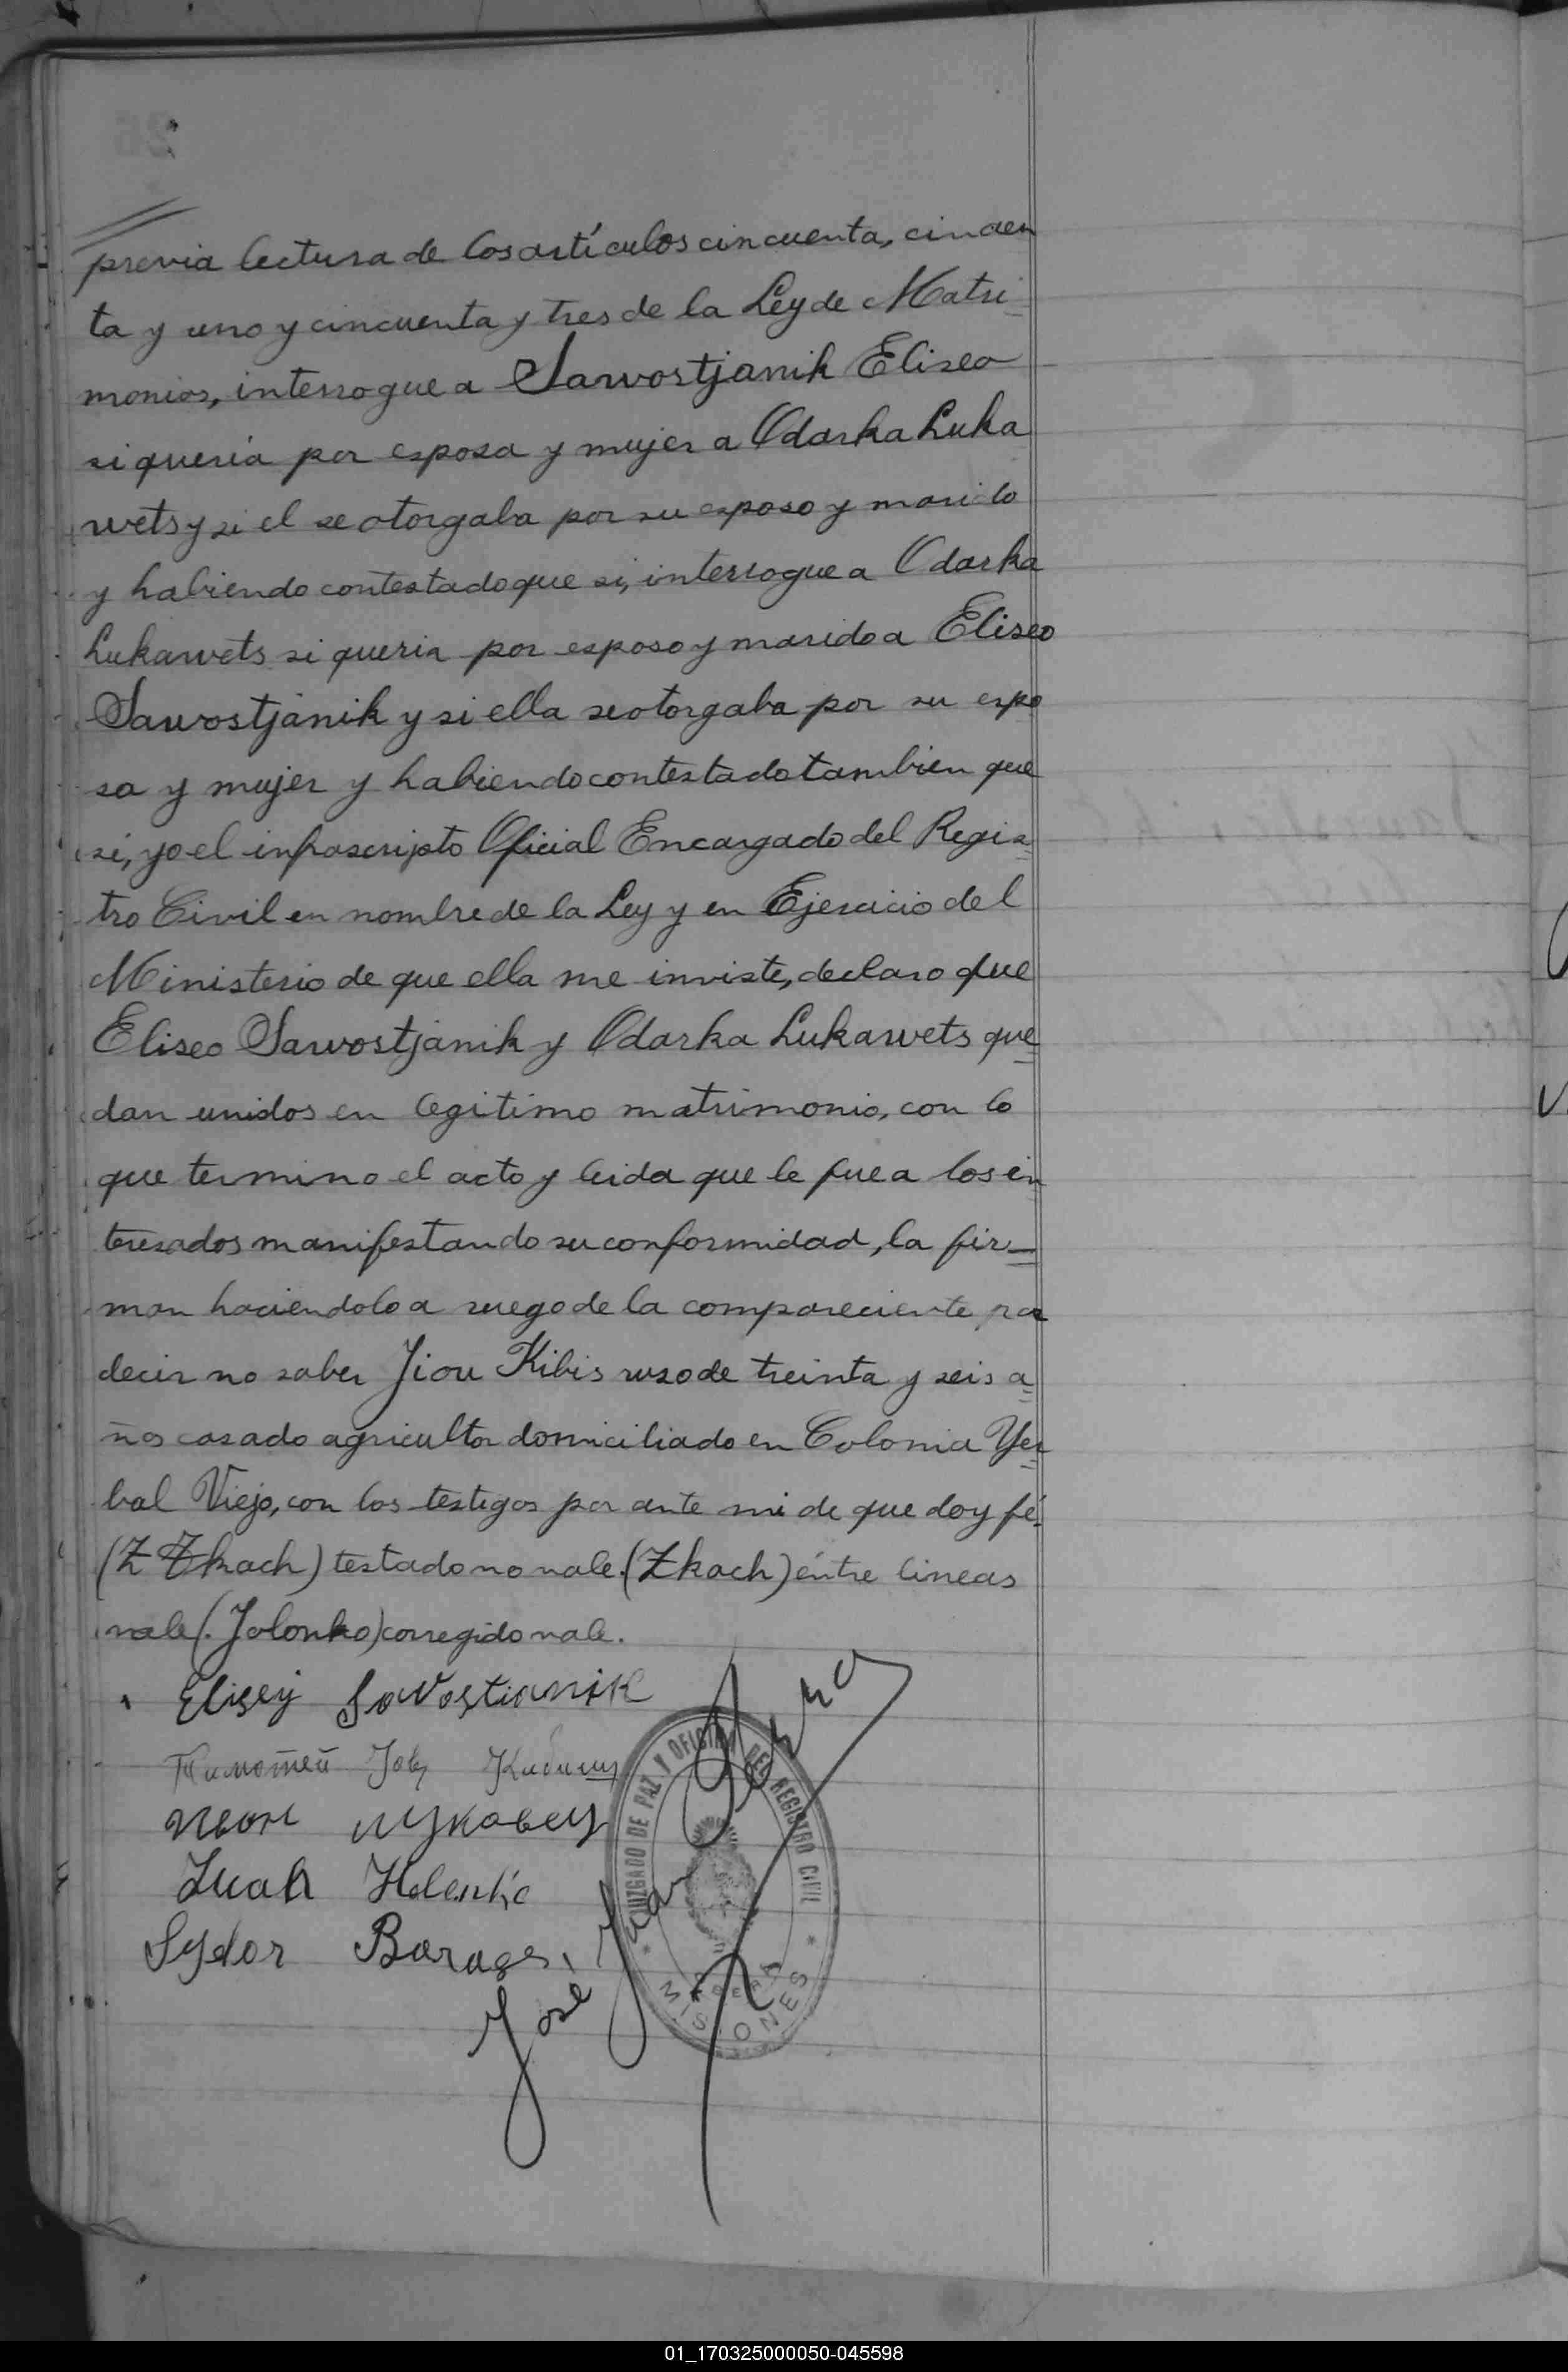 previa lectura de los artículos cincuenta, cincuen
ta y uno y cincuenta y tres de la Ley de Matri
monios, interrogue a Sawostjanik Eliseo
si quería por esposa y mujer a Odarka Luka
wets y si el se otorgaba por su esposo y marido
y habiendo contestado que si, interrogue a Odarka
Lukawets si queria por esposo y marido a Eliseo
Sawostjanik y si ella se otorgaba por su espo
sa y mujer y habiendo contestado tambien que
si, yo el infrascripto Oficial Encargado del Regis
tro Civil en nombre de la Ley y en Ejercicio del
Ministerio de que ella me inviste, declaro que
Eliseo Sawostjanik y Odarka Lukawets que
dan unidos en legitimo matrimonio, con lo
que termino el acto y leida que le fue a los in
teresados manifestando su conformidad, la fir
man haciendolo a ruego de la compareciente por
decir no saber Jiou Kibis ruso de treinta y seis a
ños casado agricultor domiciliado en Colonia Yer
bal Viejo, con los testigos por ante mi de que doy fé.
(Z Zkach) testado no vale. (Zkach) entre lineas
vale. (Jolonko) corregido vale.
Elisey Savostianik
Тимотей
Иван Луковец
Juan
Sydor
José Juan
JUZGADO DE PAZ Y OFICINA DEL REGISTRO CIVIL
MISIONES
01_170325000050-045598